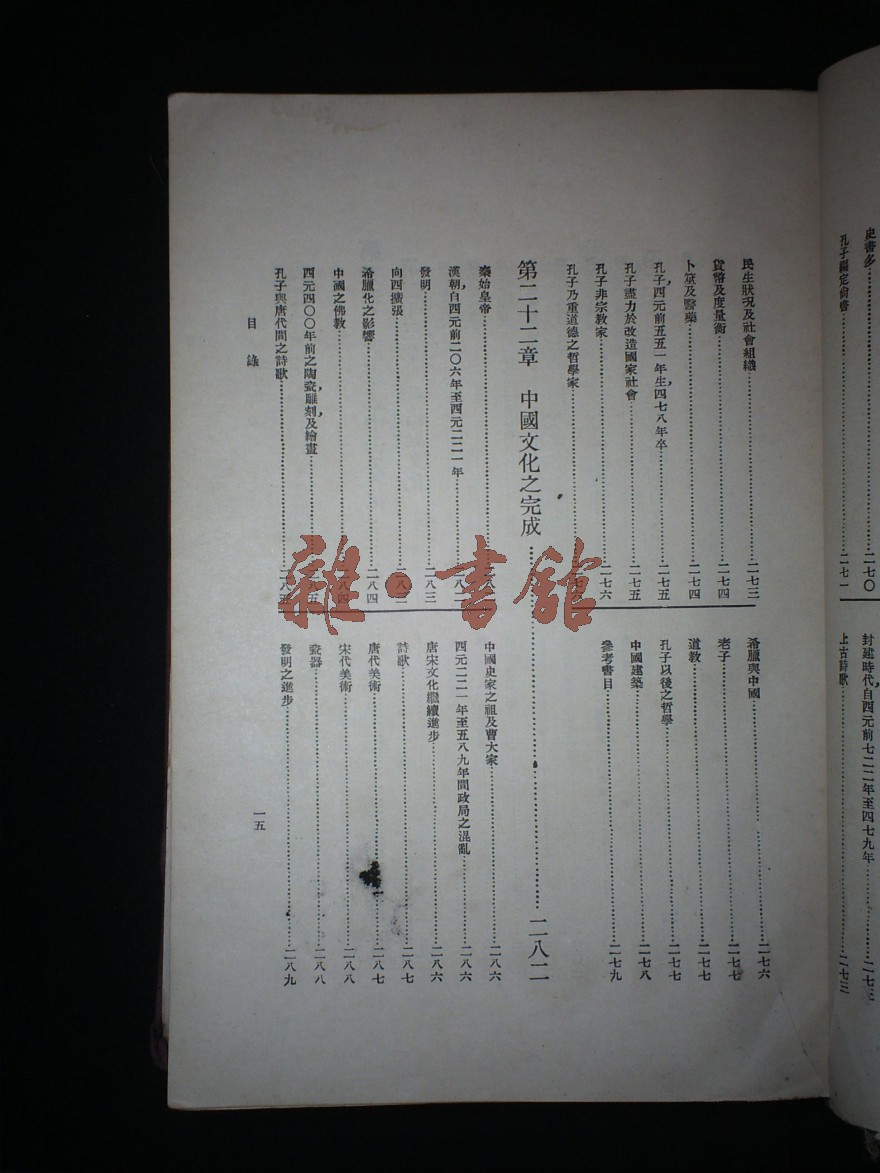 史書多……二七〇
孔子編定尚書……二七一
封建時代,自西元前七二二年至四七九年……二七三
上古詩歌……二七三
民生狀況及社會組織……二七三
貨幣及度量衡……二七四
卜筮及醫藥……二七四
孔子,西元前五五一年生,四七八年卒……二七五
孔子盡力於改造國家社會……二七五
孔子非宗教家……二七六
孔子乃重道德之哲學家……二七六
希臘與中國……二七六
老子……二七七
道教……二七七
孔子以後之哲學……二七七
中國建築……二七八
參考書目……二七九
第二十二章 中國文化之完成……二八二
秦始皇帝……二八二
漢朝,自西元前二〇六年至西元二二一年……二八二
發明……二八三
向西擴張……二八三
希臘化之影響……二八四
中國之佛教……二八四
西元四〇〇年前之陶瓷,雕刻,及繪畫……二八五
孔子與唐代間之詩歌……二八五
中國史家之祖及曹大家……二八六
西元二二一年至五八九年間政局之混亂……二八六
唐宋文化繼續進步……二八六
詩歌……二八七
唐代美術……二八七
宋代美術……二八八
瓷器……二八八
發明之進步……二八九
目錄
一五
雜·書館